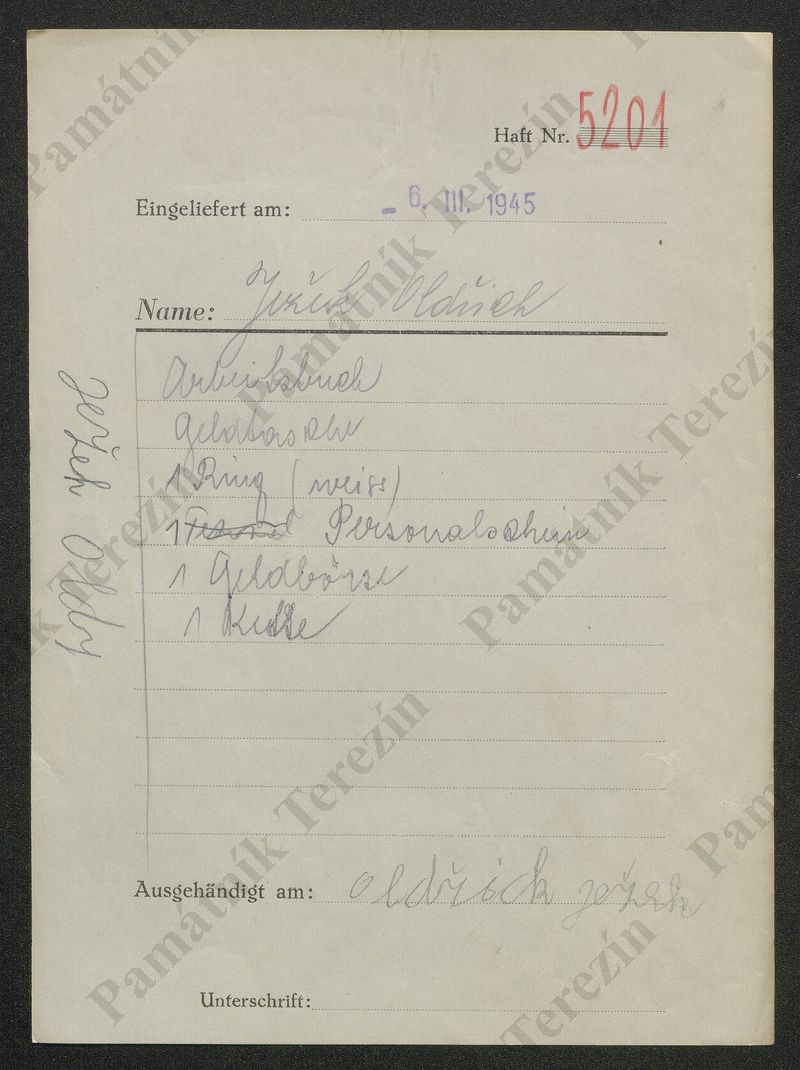 Haft Nr. 5201
Eingeliefert am: - 6. III. 1945
Name: Ježek Oldřich
Arbeitsbuch
Geldtasche
1 Ring (weiss)
1 Personalschein
1 Geldbörse
1 Kette
Ausgehändigt am: Oldřich Ježek
Unterschrift:
Ježek Oldř
Památník Terezín